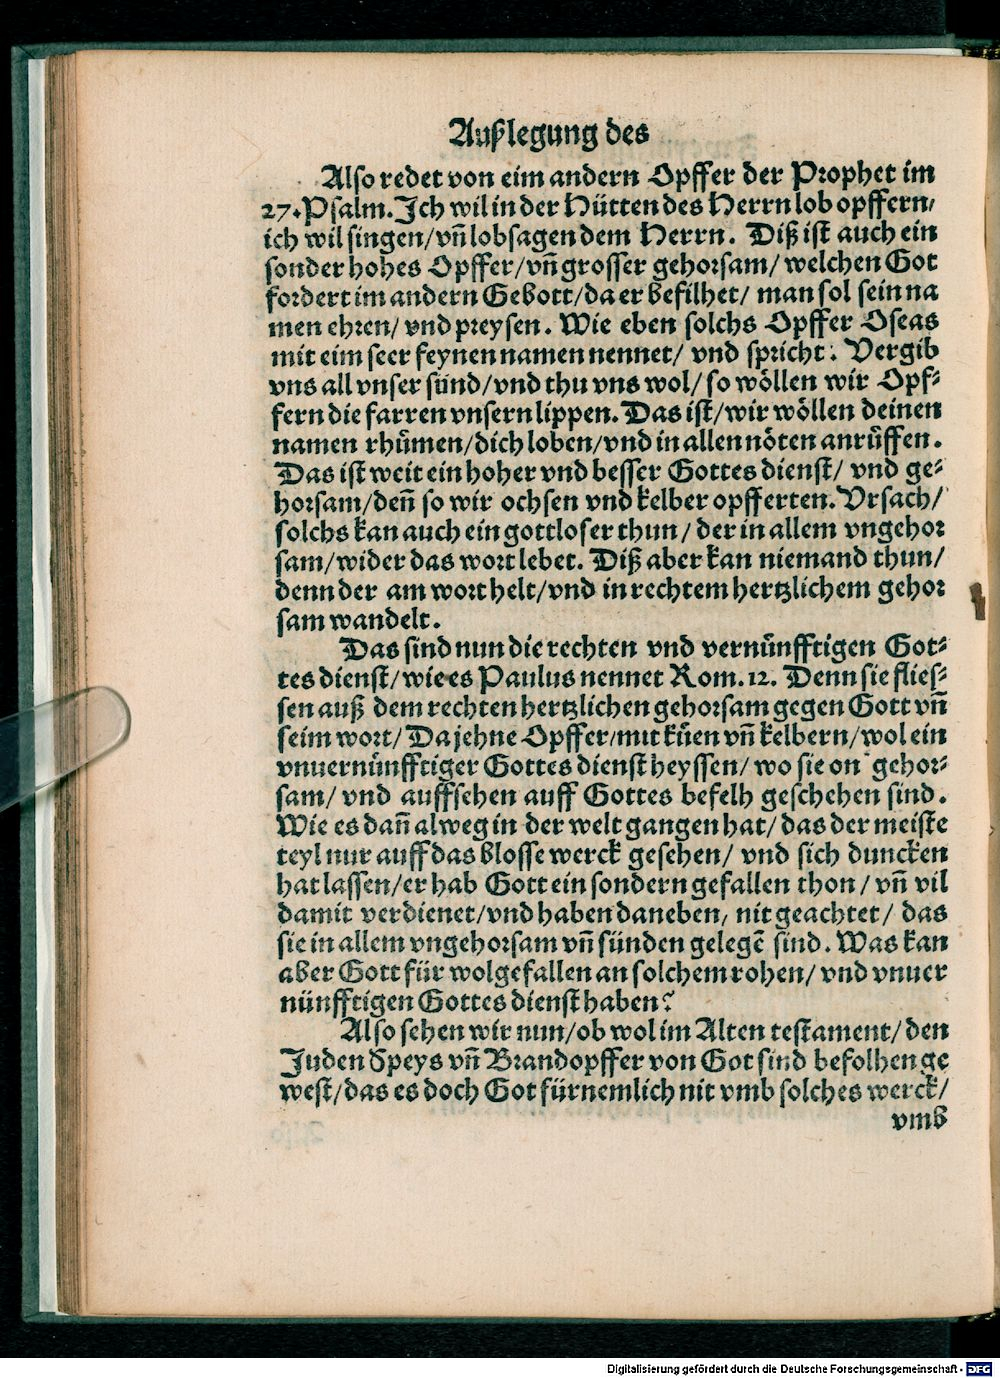 Außlegung des
Also redet von eim andern Opffer der Prophet im
27. Psalm. Ich wil in der Hütten des Herrn lob opffern/
ich wil singen/ vñ lobsagen dem Herrn. Diß ist auch ein
sonder hohes Opffer/ vñ grosser gehorsam/ welchen Got
fordert im andern Gebott/ da er befilhet/ man sol sein na
men ehren/ vnd preysen. Wie eben solchs Opffer Oseas
mit eim seer feynen namen nennet/ vnd spricht: Vergib
vns all vnser sünd/ vnd thu vns wol/ so wöllen wir Opf-
fern die farren vnsern lippen. Das ist/ wir wöllen deinen
namen rhümen/ dich loben/ vnd in allen nöten anrüffen.
Das ist weit ein hoher vnd besser Gottes dienst/ vnd ge-
horsam/ deñ so wir ochsen vnd kelber opfferten. Vrsach/
solchs kan auch ein gottloser thun/ der in allem vngehor
sam/ wider das wort lebet. Diß aber kan niemand thun/
denn der am wort helt/ vnd in rechtem hertzlichem gehor
sam wandelt.
Das sind nun die rechten vnd vernünfftigen Got-
tes dienst/ wie es Paulus nennet Rom. 12. Denn sie flies-
sen auß dem rechten hertzlichen gehorsam gegen Gott vñ
seim wort/ Da jehne Opffer/ mit küen vñ kelbern/ wol ein
vnuernünfftiger Gottes dienst heyssen/ wo sie on gehor-
sam/ vnd auffsehen auff Gottes befelh geschehen sind.
Wie es dañ alweg in der welt gangen hat/ das der meiste
teyl nur auff das blosse werck gesehen/ vnd sich duncken
hat lassen/ er hab Gott ein sondern gefallen thon/ vñ vil
damit verdienet/ vnd haben daneben, nit geachtet/ das
sie in allem vngehorsam vñ sünden gelegẽ sind. Was kan
aber Gott für wolgefallen an solchem rohen/ vnd vnuer
nünfftigen Gottes dienst haben?
Also sehen wir nun/ ob wol im Alten testament/ den
Juden Speys vñ Brandopffer von Got sind befolhen ge
west/ das es doch Got fürnemlich nit vmb solches werck/
vmb
Digitalisierung gefördert durch die Deutsche Forschungsgemeinschaft - DFG